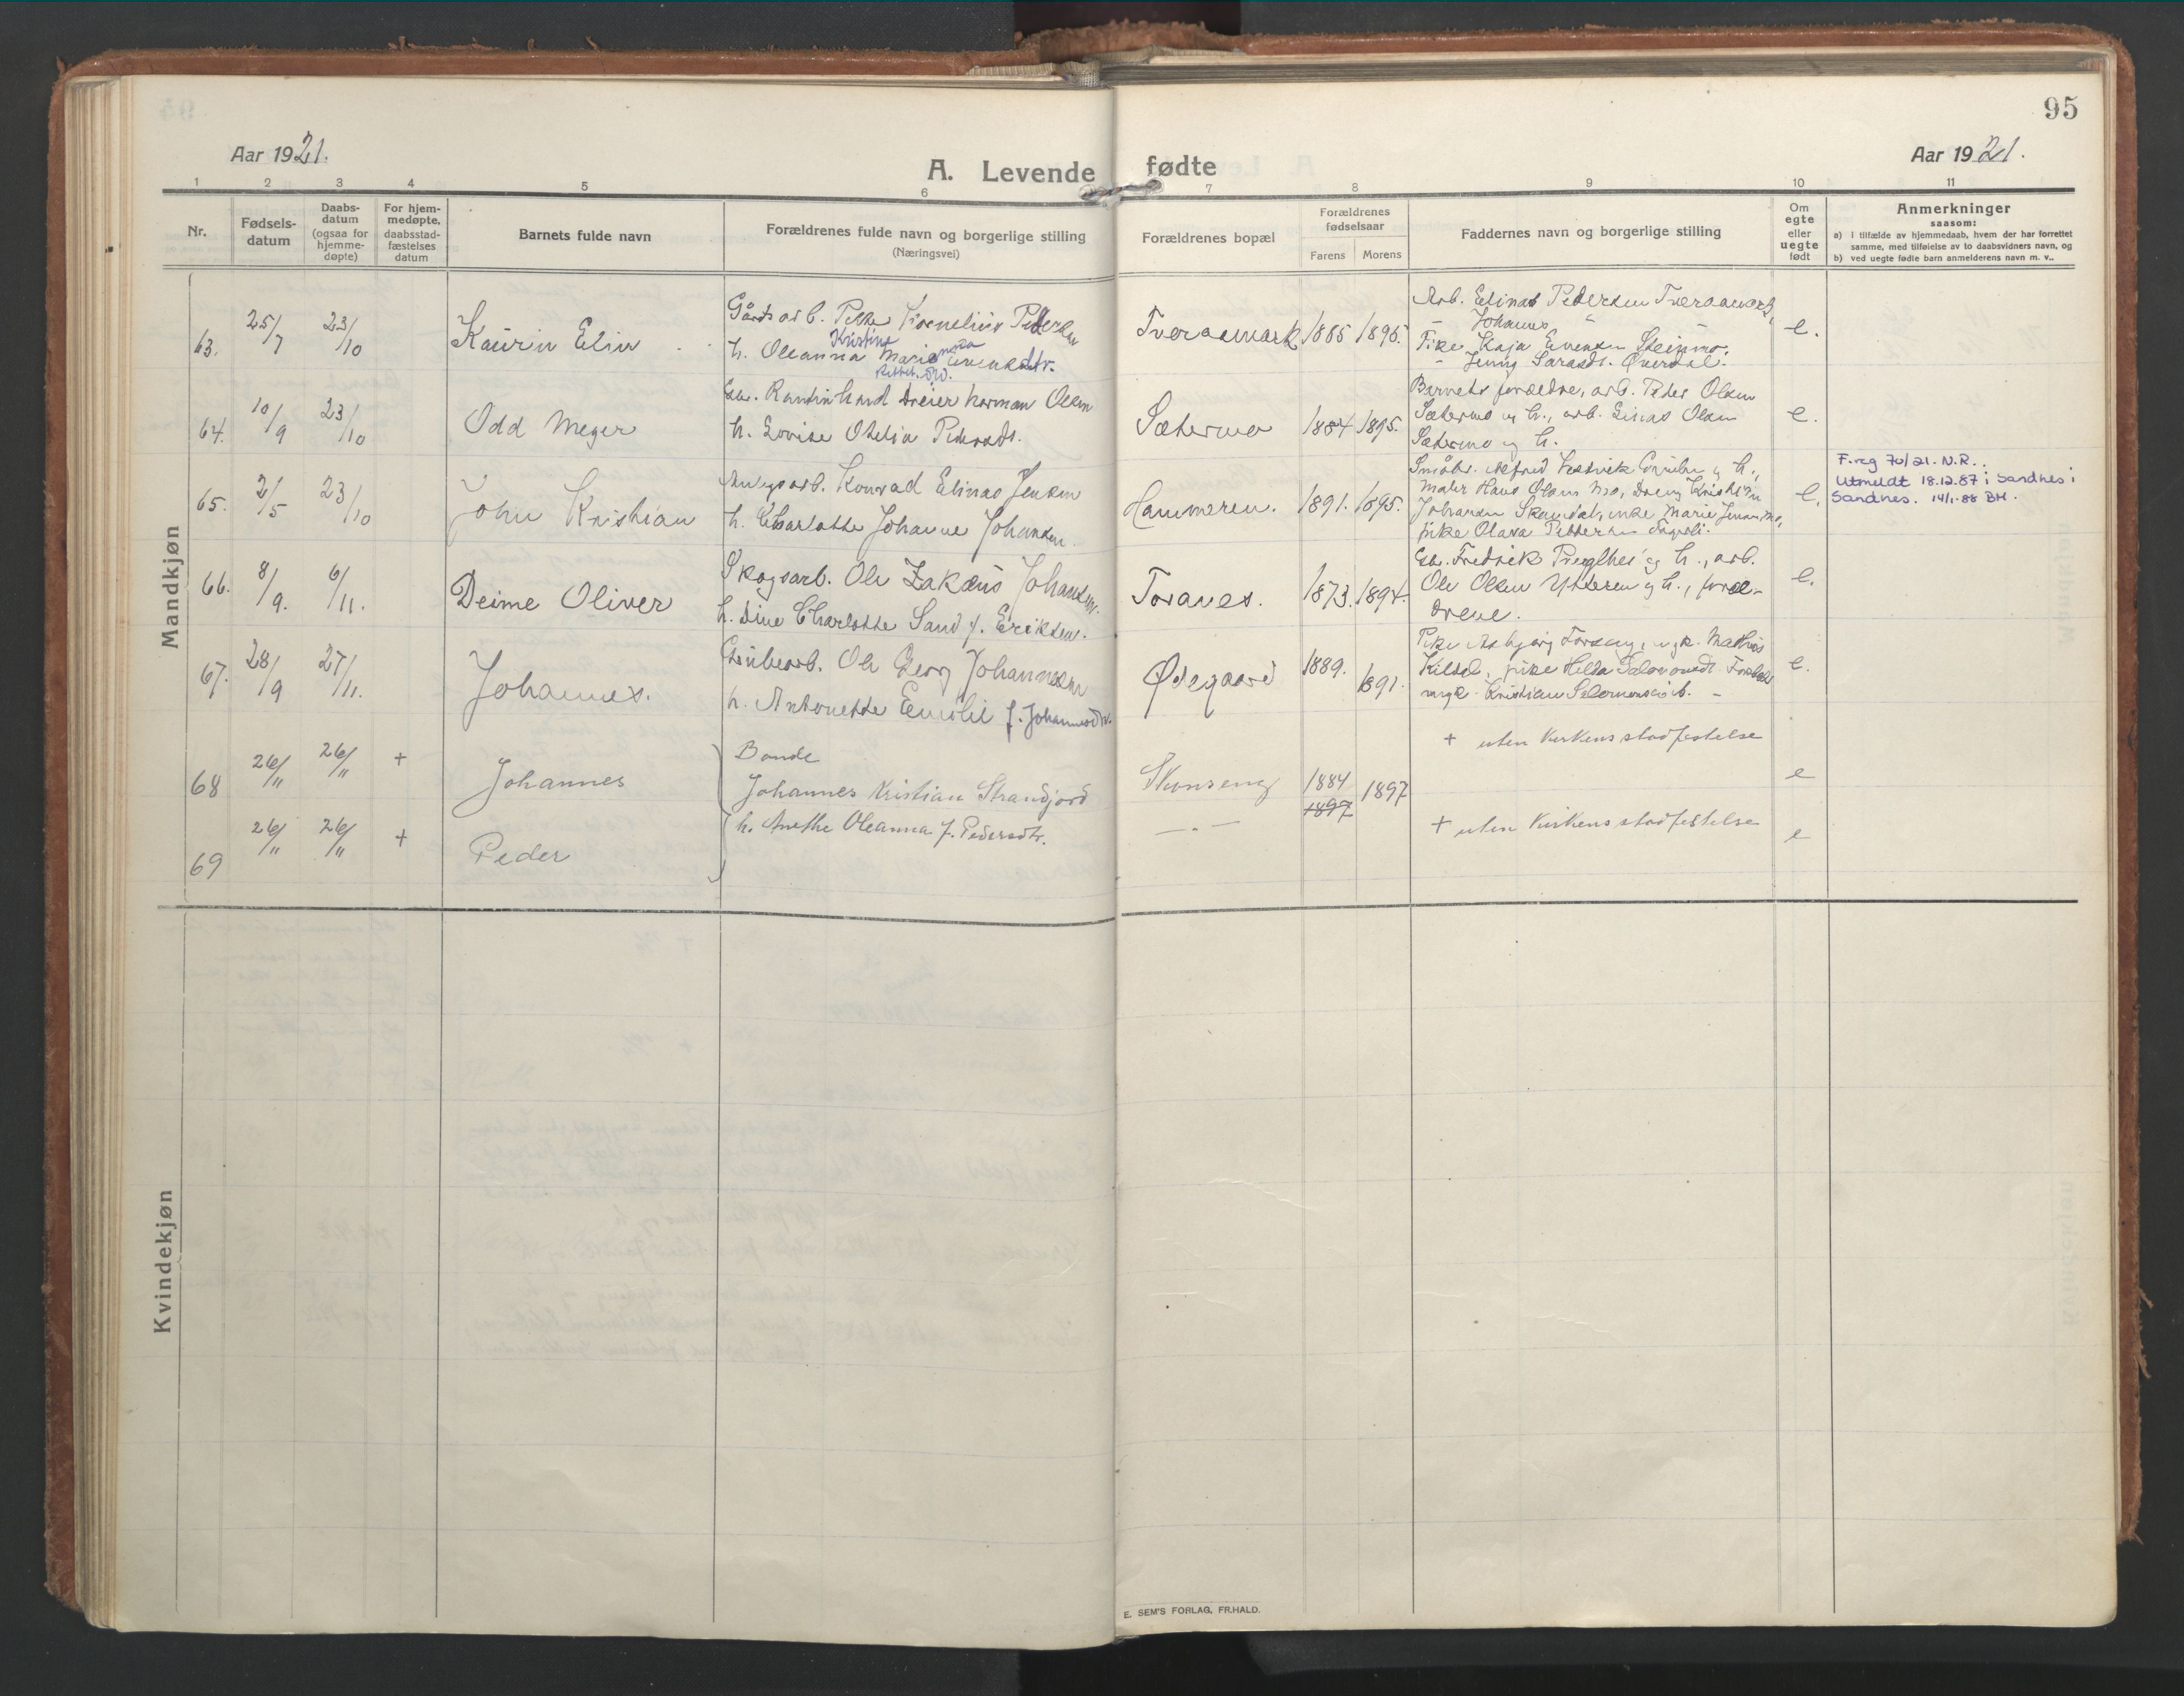 95
Aar 1921.
A. Levende fødte
Aar 1921.
1 2 3 4 5 6 7 8 9 10 11
Nr.
Fødsels-
datum
Daabs-
datum
(ogsaa for
hjemme-
døpte)
For hjem-
medøpte,
daabsstad-
fæstelses
datum
Barnets fulde navn
Forældrenes fulde navn og borgerlige stilling
(Næringsvei)
Forældrenes bopæl
Forældrenes
fødselsaar
Farens Morens
Faddernes navn og borgerlige stilling
Om
egte
eller
uegte
født
Anmerkninger
saasom:
a) i tilfælde av hjemmedaab, hvem der har forrettet
samme, med tilføielse av to daabsvidners navn, og
b) ved uegte fødte barn anmelderens navn m. v..
Mandkjøn
63. 25/7 23/10 Kaurin Elin
Gårdsarb. Petter Kornelius Pedersen
Kristine
h. Oleanna Marie Evensdtr.
Rettet.
Tveraamark 1885 1895.
Arb. Edinas Pedersen Tveraamark,
- Johannes "
Pike Kaja Evensen Steinmo.
- Jenny Larsdt. Øverdal.
e.
64. 10/9 23/10 Odd Meyer
Gbr. Reinhard Dreier Norman Olsen
h. Lovise Otelia Pedersdt.
Sætermo 1884 1895.
Barnets forældre, arb. Peder Olsen
Sætermo og h., arb. Einar Olsen
Sætermo og h.
e.
65. 2/5 23/10 John Kristian
Anlegsarb. Konrad Elinas Jensen
h. Charlotte Johanne Johansen
Hammeren. 1891. 1895.
Småbr. Alfred Fredrik og h.,
maler Hans Olsen Mo, Dreng Kristian
Johansen, enke Marie Jensen Mo,
pike Olava Pettersen
e.
F.reg 70/21. N.R..
Utmeldt 18.12.87 i Sandnes i
Sandnes. 14/1-88 BM.
66. 8/9. 6/11. Deime Oliver
Skogsarb. Ole Zakæus Johansen
h. Dine Charlotte Sand f. Eriksen.
Toranes. 1873. 1894.
Gbr. Fredrik og h., arb.
Ole Olsen Ytteren og h., foræl-
drene.
e.
67. 28/9 27/11. Johannes.
Grubearb. Ole Georg Johannesen
h. Antonette Emilie f. Johannesdtr.
Ødegaard 1889. 1891.
Pike Asbjørg ungk. Mathis
pike Helda Salomonsdt.
ungk. Kristian Salomonsen
e.
68 26/11 26/11 + Johannes
Bonde
Johannes Kristian Strandjord
h. Anethe Oleanna f. Pedersdtr.
Skonseng 1884 1897 1897
+ uten kirkens stadfestelse
e
69 26/11 26/11 + Peder
-"-
+ uten kirkens stadfestelse
e
Kvindekjøn
E. SEM'S FORLAG, FR.HALD.